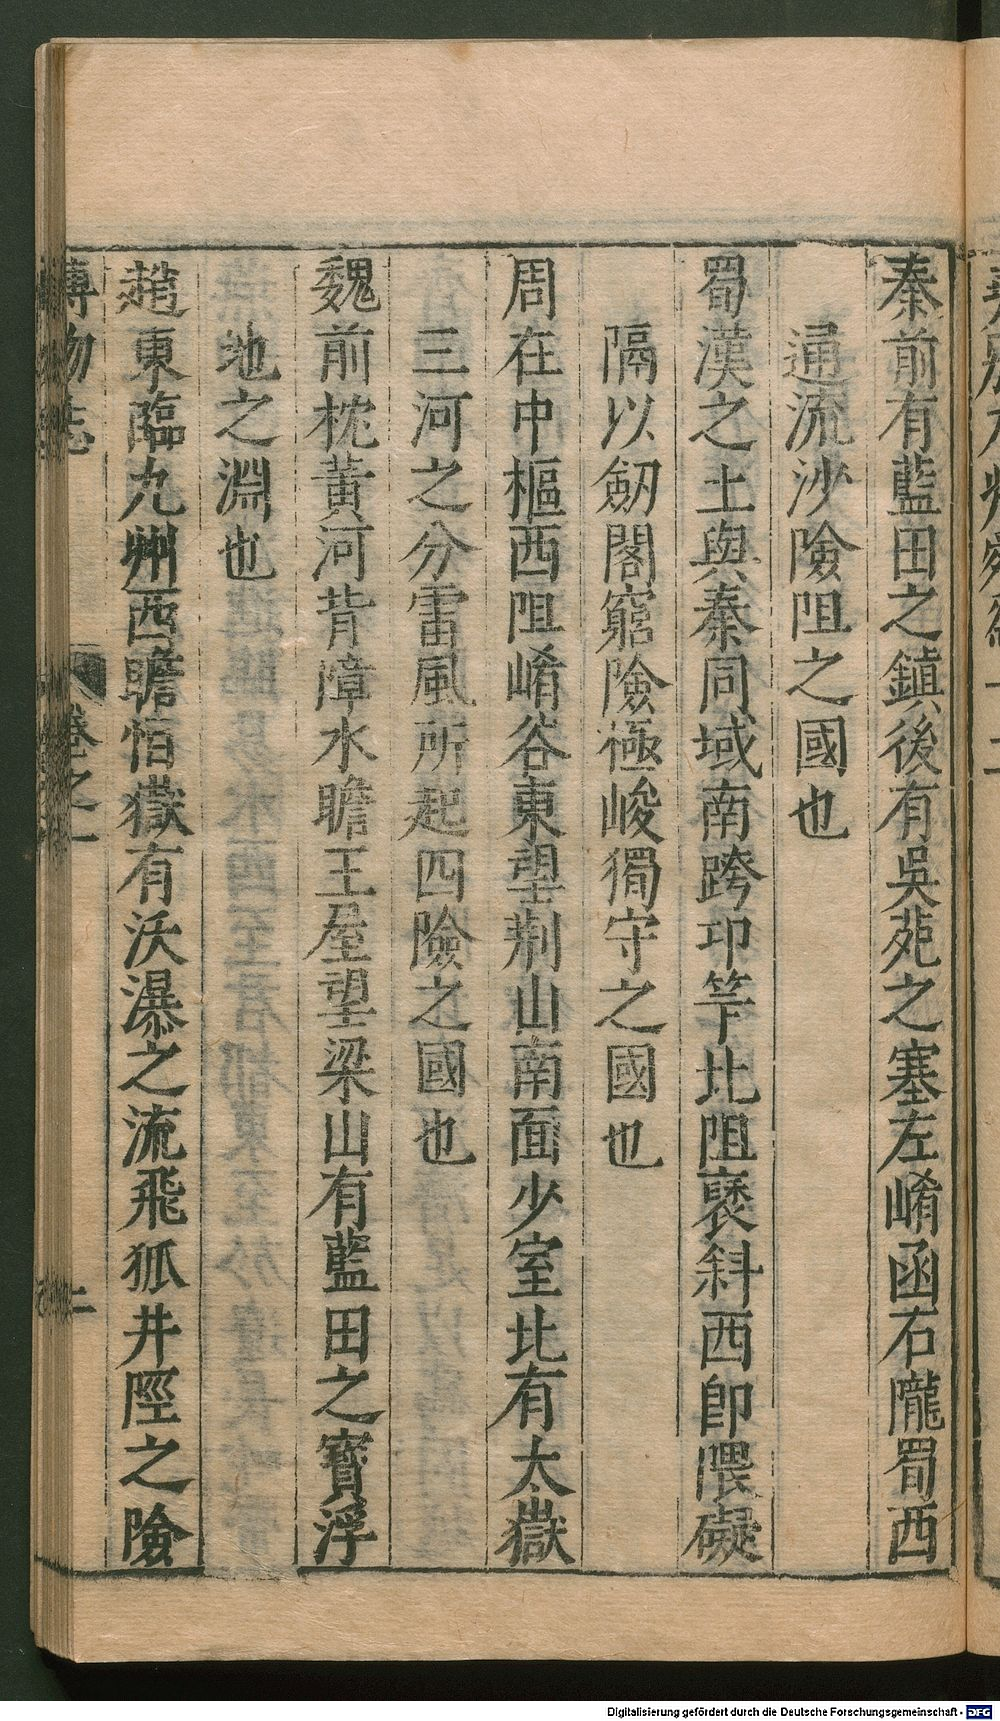 秦前有藍田之鎮後有吳苑之塞左崤函右隴蜀西
通流沙險阻之國也
蜀漢之土與秦同域南跨卭筰北阻褒斜西即隈礙
隔以劒閣窮險極峻獨守之國也
周在中樞西阻崤谷東望荆山南面少室北有太嶽
三河之分雷風所起四險之國也
魏前枕黃河背漳水瞻王屋望梁山有藍田之寶浮
地之淵也
趙東臨九州西瞻恒嶽有沃瀑之流飛狐井陘之險
博物志 卷之一 二
Digitalisierung gefördert durch die Deutsche Forschungsgemeinschaft - DFG